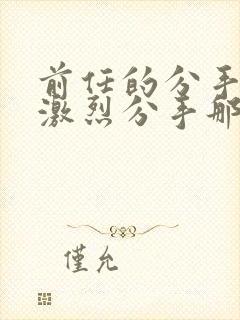 前任的分手
激烈分手那
僅允